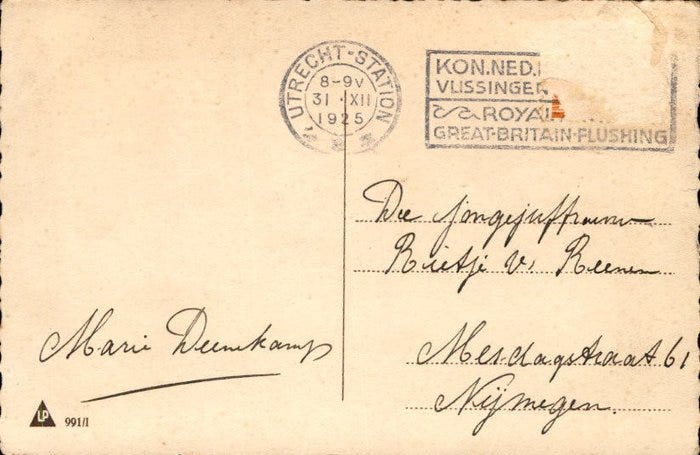 UTRECHT-STATION
8-9V
31 XII
1925
KON.NED.
VLISSINGEN
ROYAL
GREAT-BRITAIN-FLUSHING
Die jongejuffrouw
Rietje v. Reenen
Mesdagstraat 61
Nijmegen.
Marie
LP
991/I